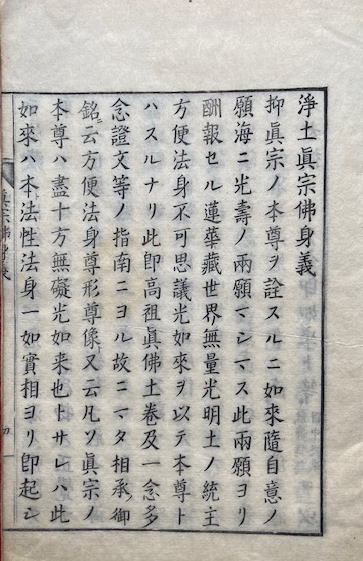 淨土眞宗佛身義
抑眞宗ノ本尊ヲ詮スルニ如來隨自意ノ
願海ニ光壽ノ兩願マシマス此兩願ヨリ
酬報セル蓮華藏世界無量光明土ノ統主
方便法身不可思議光如來ヲ以テ本尊ト
ハスルナリ此即高祖眞佛土卷及一念多
念證文等ノ指南ニヨル故ニマタ相承御
銘ニ云方便法身尊形尊像又云凡ソ眞宗ノ
本尊ハ盡十方無礙光如来也トサレハ此
如來ハ本法性法身一如實相ヨリ即起シ